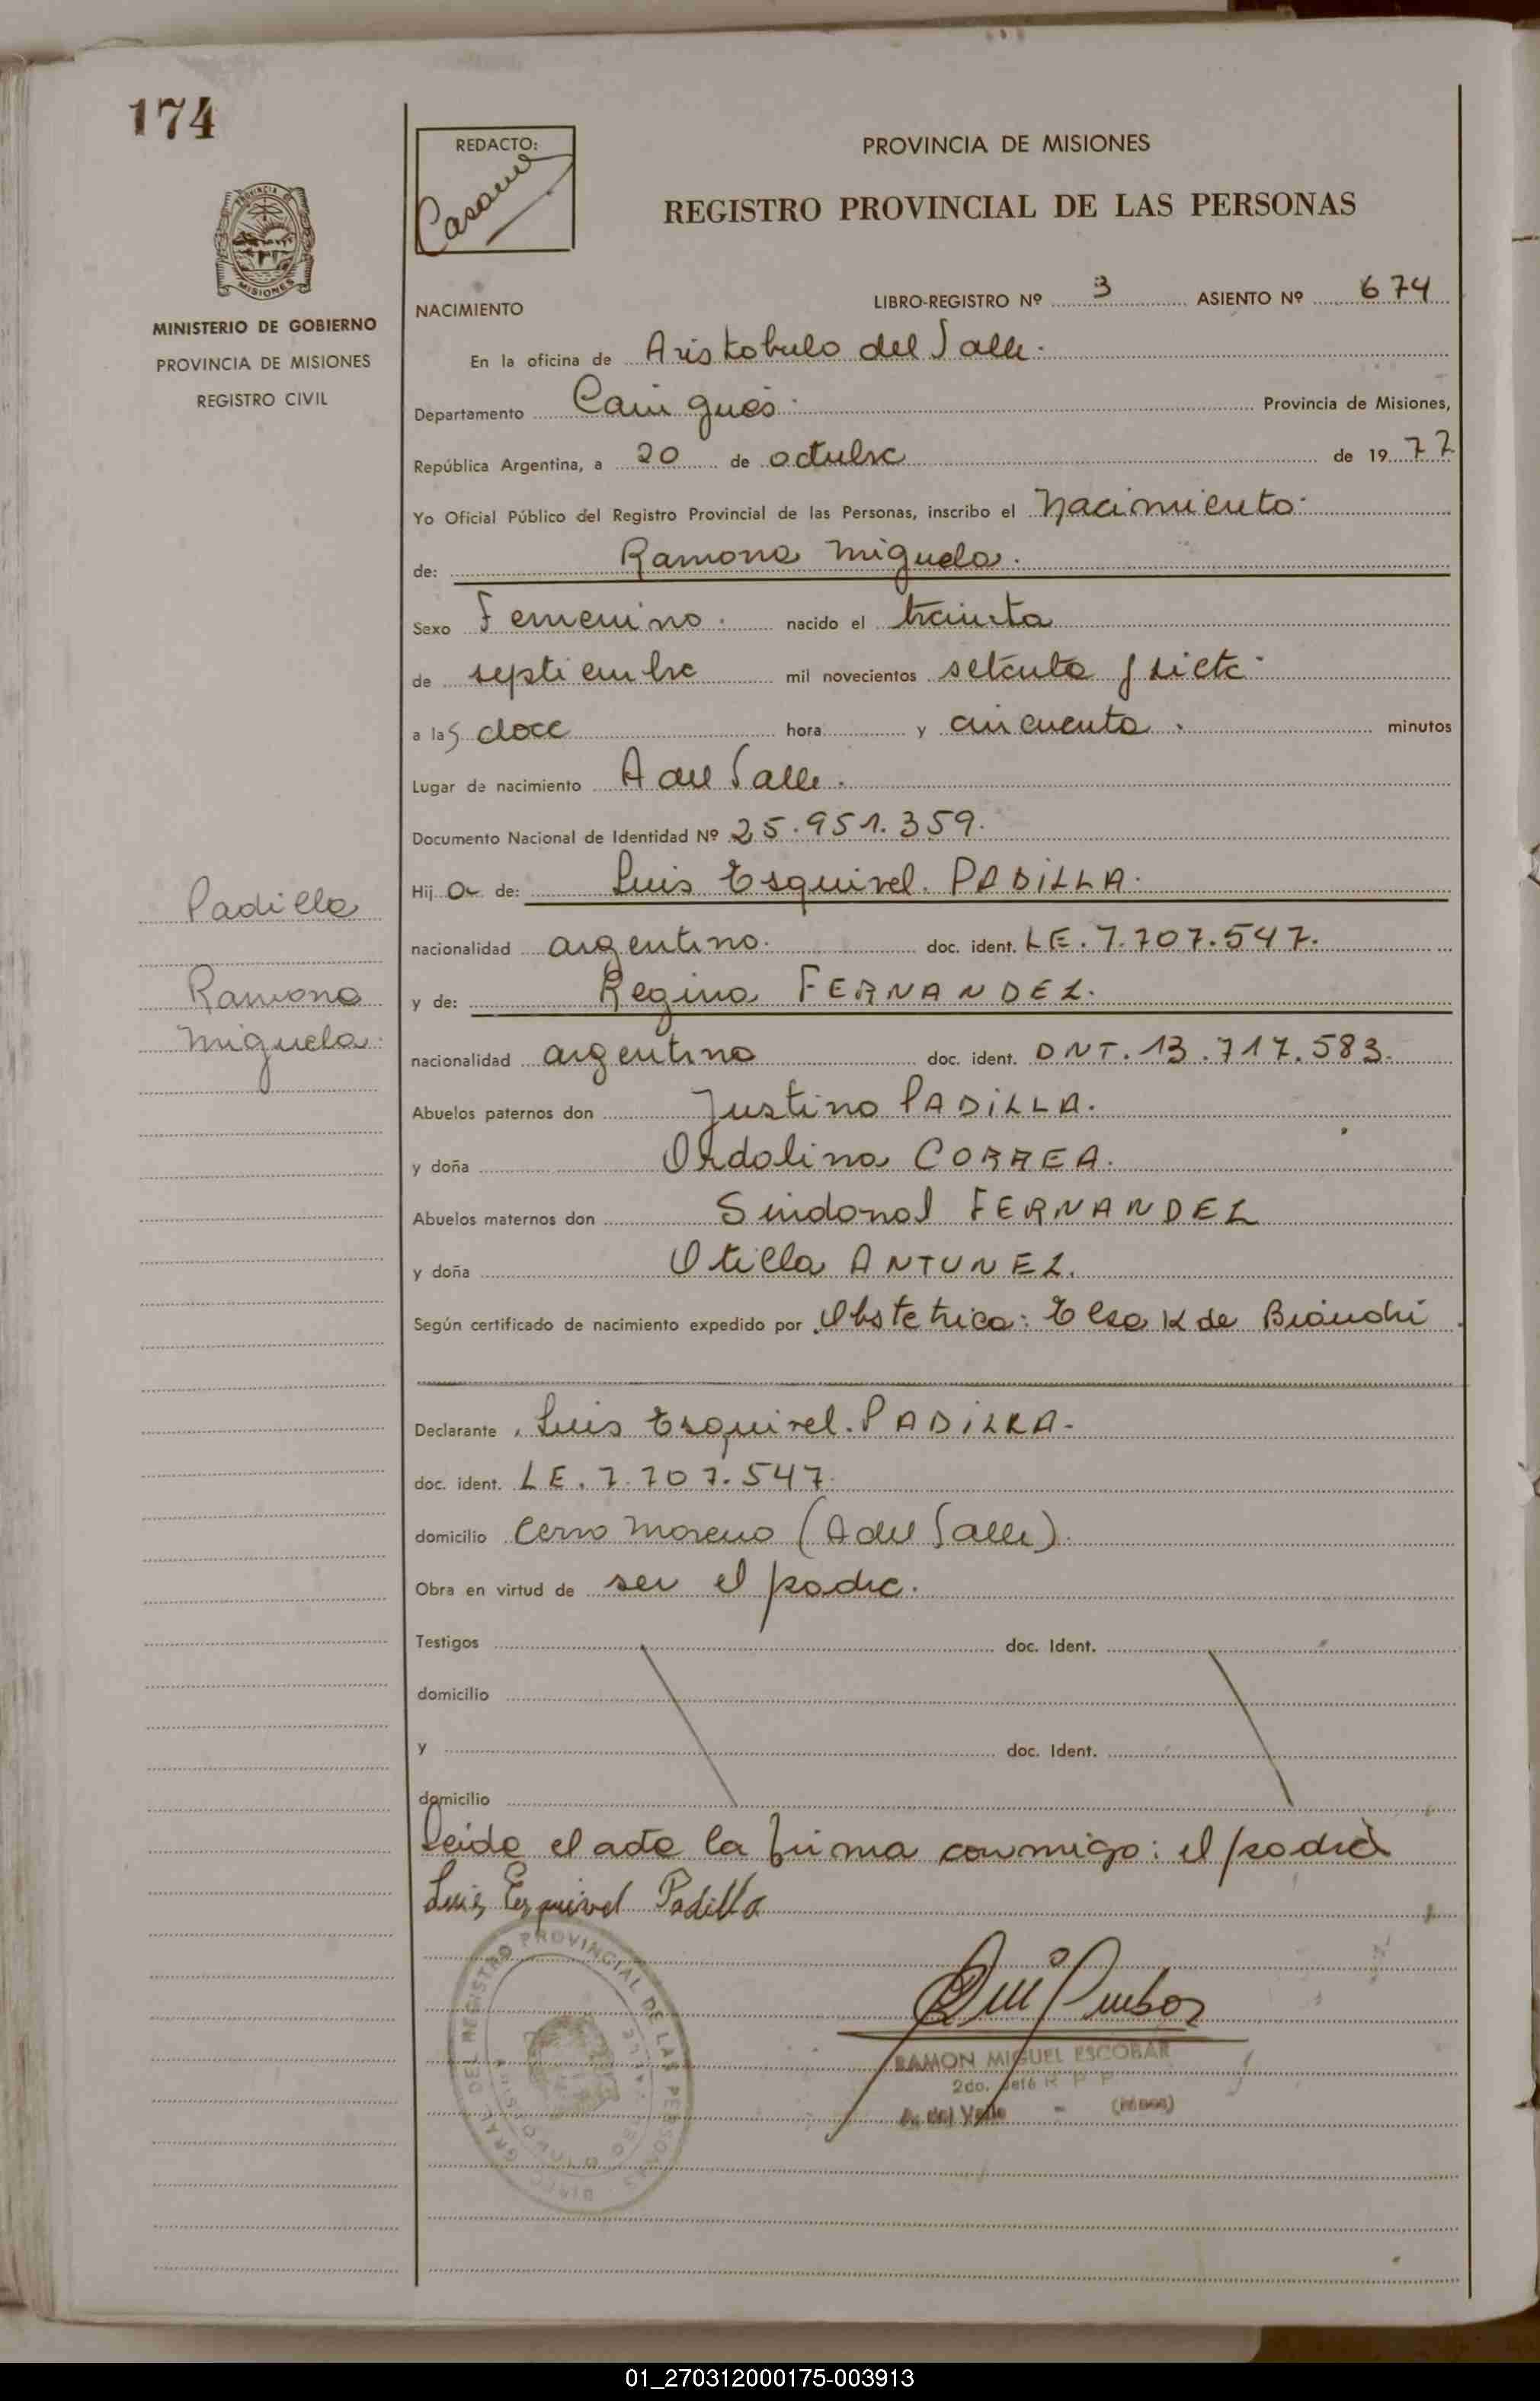 174
REDACTO:
PROVINCIA DE MISIONES
REGISTRO PROVINCIAL DE LAS PERSONAS
PROVINCIA
MISIONES
MINISTERIO DE GOBIERNO
PROVINCIA DE MISIONES
REGISTRO CIVIL
NACIMIENTO
LIBRO-REGISTRO Nº 3 ASIENTO Nº 674
En la oficina de Aristobulo del Valle.
Departamento Cainguás. Provincia de Misiones,
República Argentina, a 20 de octubre de 1977
Yo Oficial Público del Registro Provincial de las Personas, inscribo el Nacimiento
de: Ramona Miguela.
Sexo Femenino. nacido el treinta
de septiembre mil novecientos setenta y siete
a las doce hora y cincuenta. minutos
Lugar de nacimiento A del Valle.
Documento Nacional de Identidad Nº 25.951.359.
Hij a de: Luis Esquivel. PADiLLA.
nacionalidad argentino. doc. ident. LE. 7.707.547.
y de: Regina FERNANDEZ.
nacionalidad argentina doc. ident. DNT. 13.717.583.
Abuelos paternos don Justino PADiLLA.
y doña Ordolina CORREA.
Abuelos maternos don Sindonal FERNANDEZ
y doña Otilla ANTUNEZ.
Según certificado de nacimiento expedido por Obstetrica: Elsa K de Bianchi
Padilla
Ramona
Miguela.
Declarante Luis Esquivel. PADiLLA-
doc. ident. LE. 7.707.547.
domicilio Cerro Moreno (A del Valle).
Obra en virtud de ser el padre.
Testigos doc. Ident.
domicilio
y doc. Ident.
domicilio
Leida el acta la firma conmigo: el padre
Luis Esquivel Padilla
REGISTRO PROVINCIAL DE LAS PERSONAS
RAMON MIGUEL ESCOBAR
2do. Jefe R P P
A. del Valle - (Mnes)
01_270312000175-003913